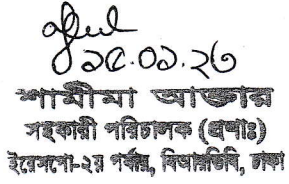 ১৫.০১.২৩
শামীমা আক্তার
সহকারী পরিচালক (প্রশাঃ)
ইরেসপো-২য় পর্যায়, বিআরডিবি, ঢাকা